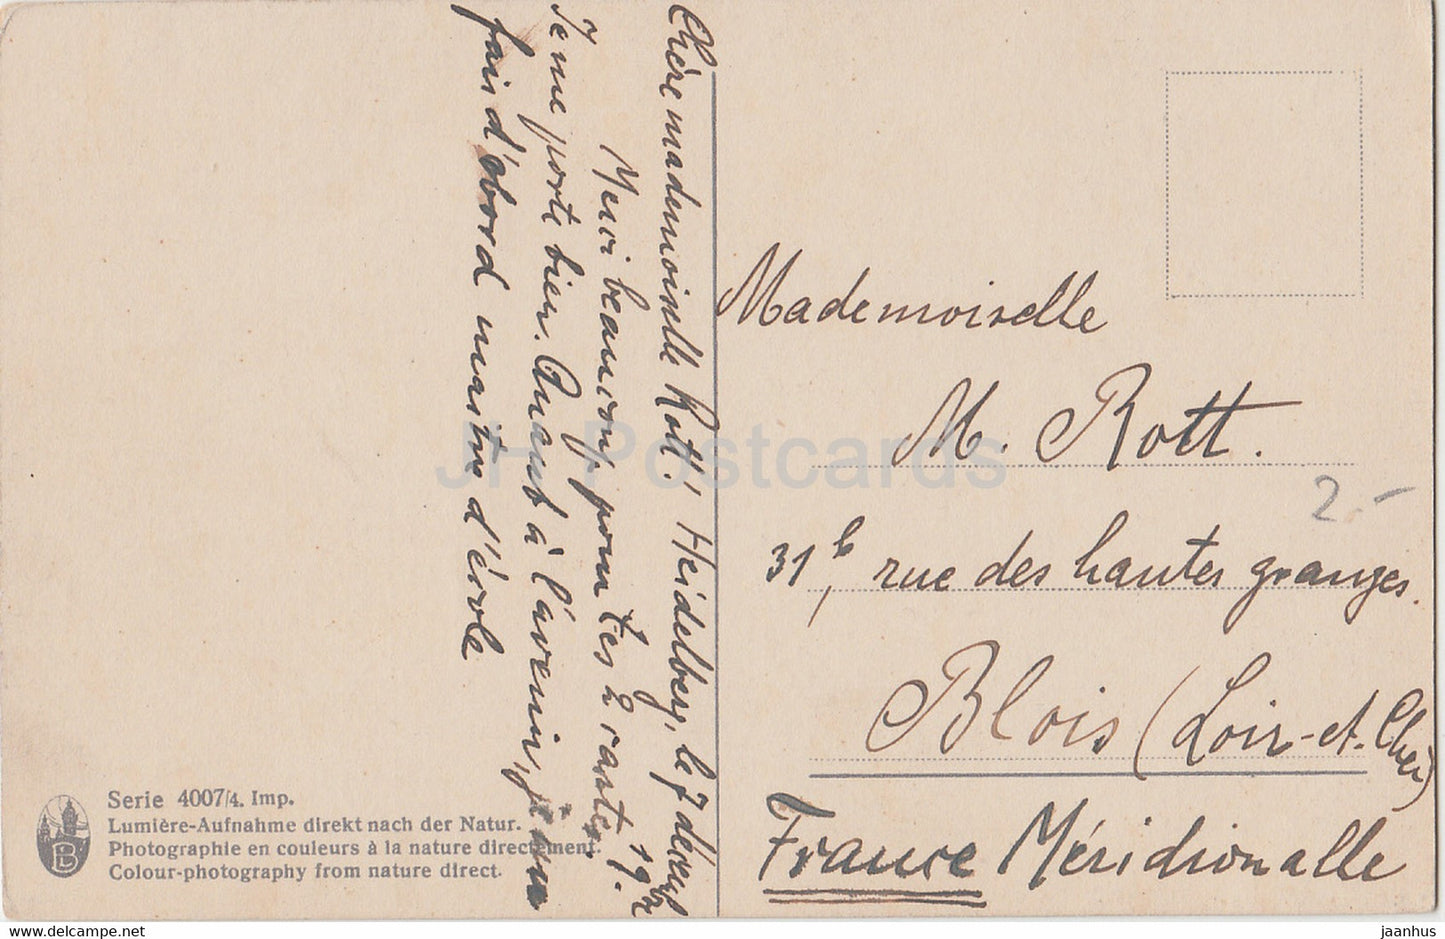 Chère mademoiselle Rott! Heidelberg, le 7 décembre
19
Merci beaucoup pour tes 2 cartes.
Je me porte bien. Quant à l'avenir, je me
fais d'abord maître d'école
Mademoiselle
M. Rott.
31b, rue des hautes granges.
Blois (Loir-et-Cher)
France Méridionalle
2.-
Serie 4007/4. Imp.
Lumière-Aufnahme direkt nach der Natur.
Photographie en couleurs à la nature directement.
Colour-photography from nature direct.
JH Postcards
www.delcampe.net
jaanhus